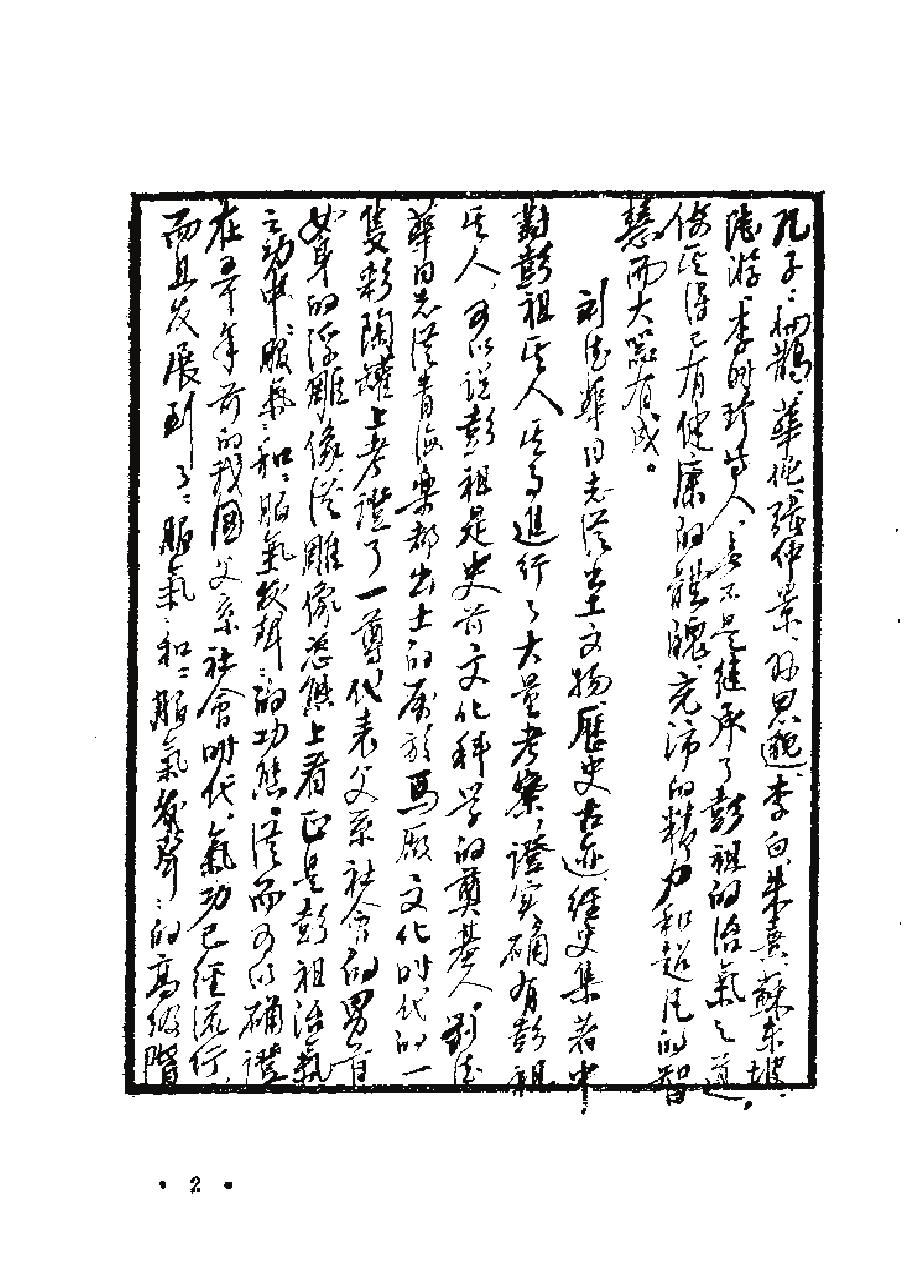 孔子、扁鵲、華佗、張仲景、孫思邈、李白、朱熹、蘇东坡、
陆游、李时珍等人、无不是继承了彭祖的治氣之道，
使其得已有健康的體魄、充沛的精力和超凡的智
慧而大器有成。
刘德華同志從出土文物、歷史古迹、经史集著中，
對彭祖其人其事進行了大量考察，證实確有彭祖
其人。可以说彭祖是史前文化科学的奠基人。劉德
華同志從青海樂都出土的属於馬厰文化时代的一
隻彩陶罐上考證了一尊代表父系社会的男首
女身的浮雕像，從雕像恣態上看正是彭祖治氣
之功中“服氣”和“服氣發聲”的功態。從而可以確證
在五千年前的我國父系社會时代，氣功已經流行，
而且发展到了“服氣”和“服氣發聲”的高级階
• 2 •